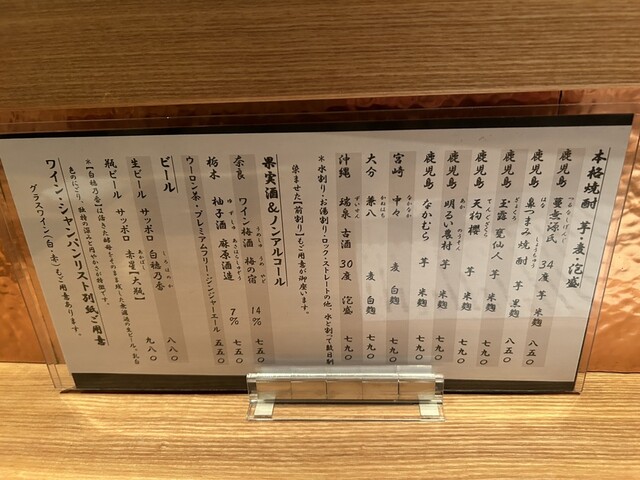 本格焼酎 芋・麦・泡盛
鹿児島 蔓無源氏 34度 芋 米麹 八五〇
鹿児島 鼻つまみ焼酎 芋 米麹 八五〇
鹿児島 玉露 甕仙人 芋 黒麹 八五〇
鹿児島 天狗櫻 芋 米麹 七九〇
鹿児島 明るい農村 芋 米麹 七九〇
鹿児島 なかむら 芋 米麹 七九〇
宮崎 中々 麦 白麹 七九〇
大分 兼八 麦 白麹 七九〇
沖縄 瑞泉 古酒 30度 泡盛 七九〇
＊水割り・お湯割り・ロック・ストレートの他、水と割って数日間
染ませた【前割り】もご用意が御座います。
果実酒&ノンアルコール
奈良 ワイン梅酒 梅の宿 14% 七五〇
栃木 柚子酒 麻原酒造 7% 七五〇
ウーロン茶・プレミアムフリー・ジンジャーエール 五五〇
ビール
生ビール サッポロ 白穂乃香 八八〇
瓶ビール サッポロ 赤星【大瓶】 九八〇
＊【白穂乃香】は活きた酵母をそのまま残した無濾過の生ビール。乳白
色のにごり、独特の深みと円やかさが特徴です。
ワイン・シャンパンリスト別紙ご用意
グラスワイン(白・赤)もご用意あります。